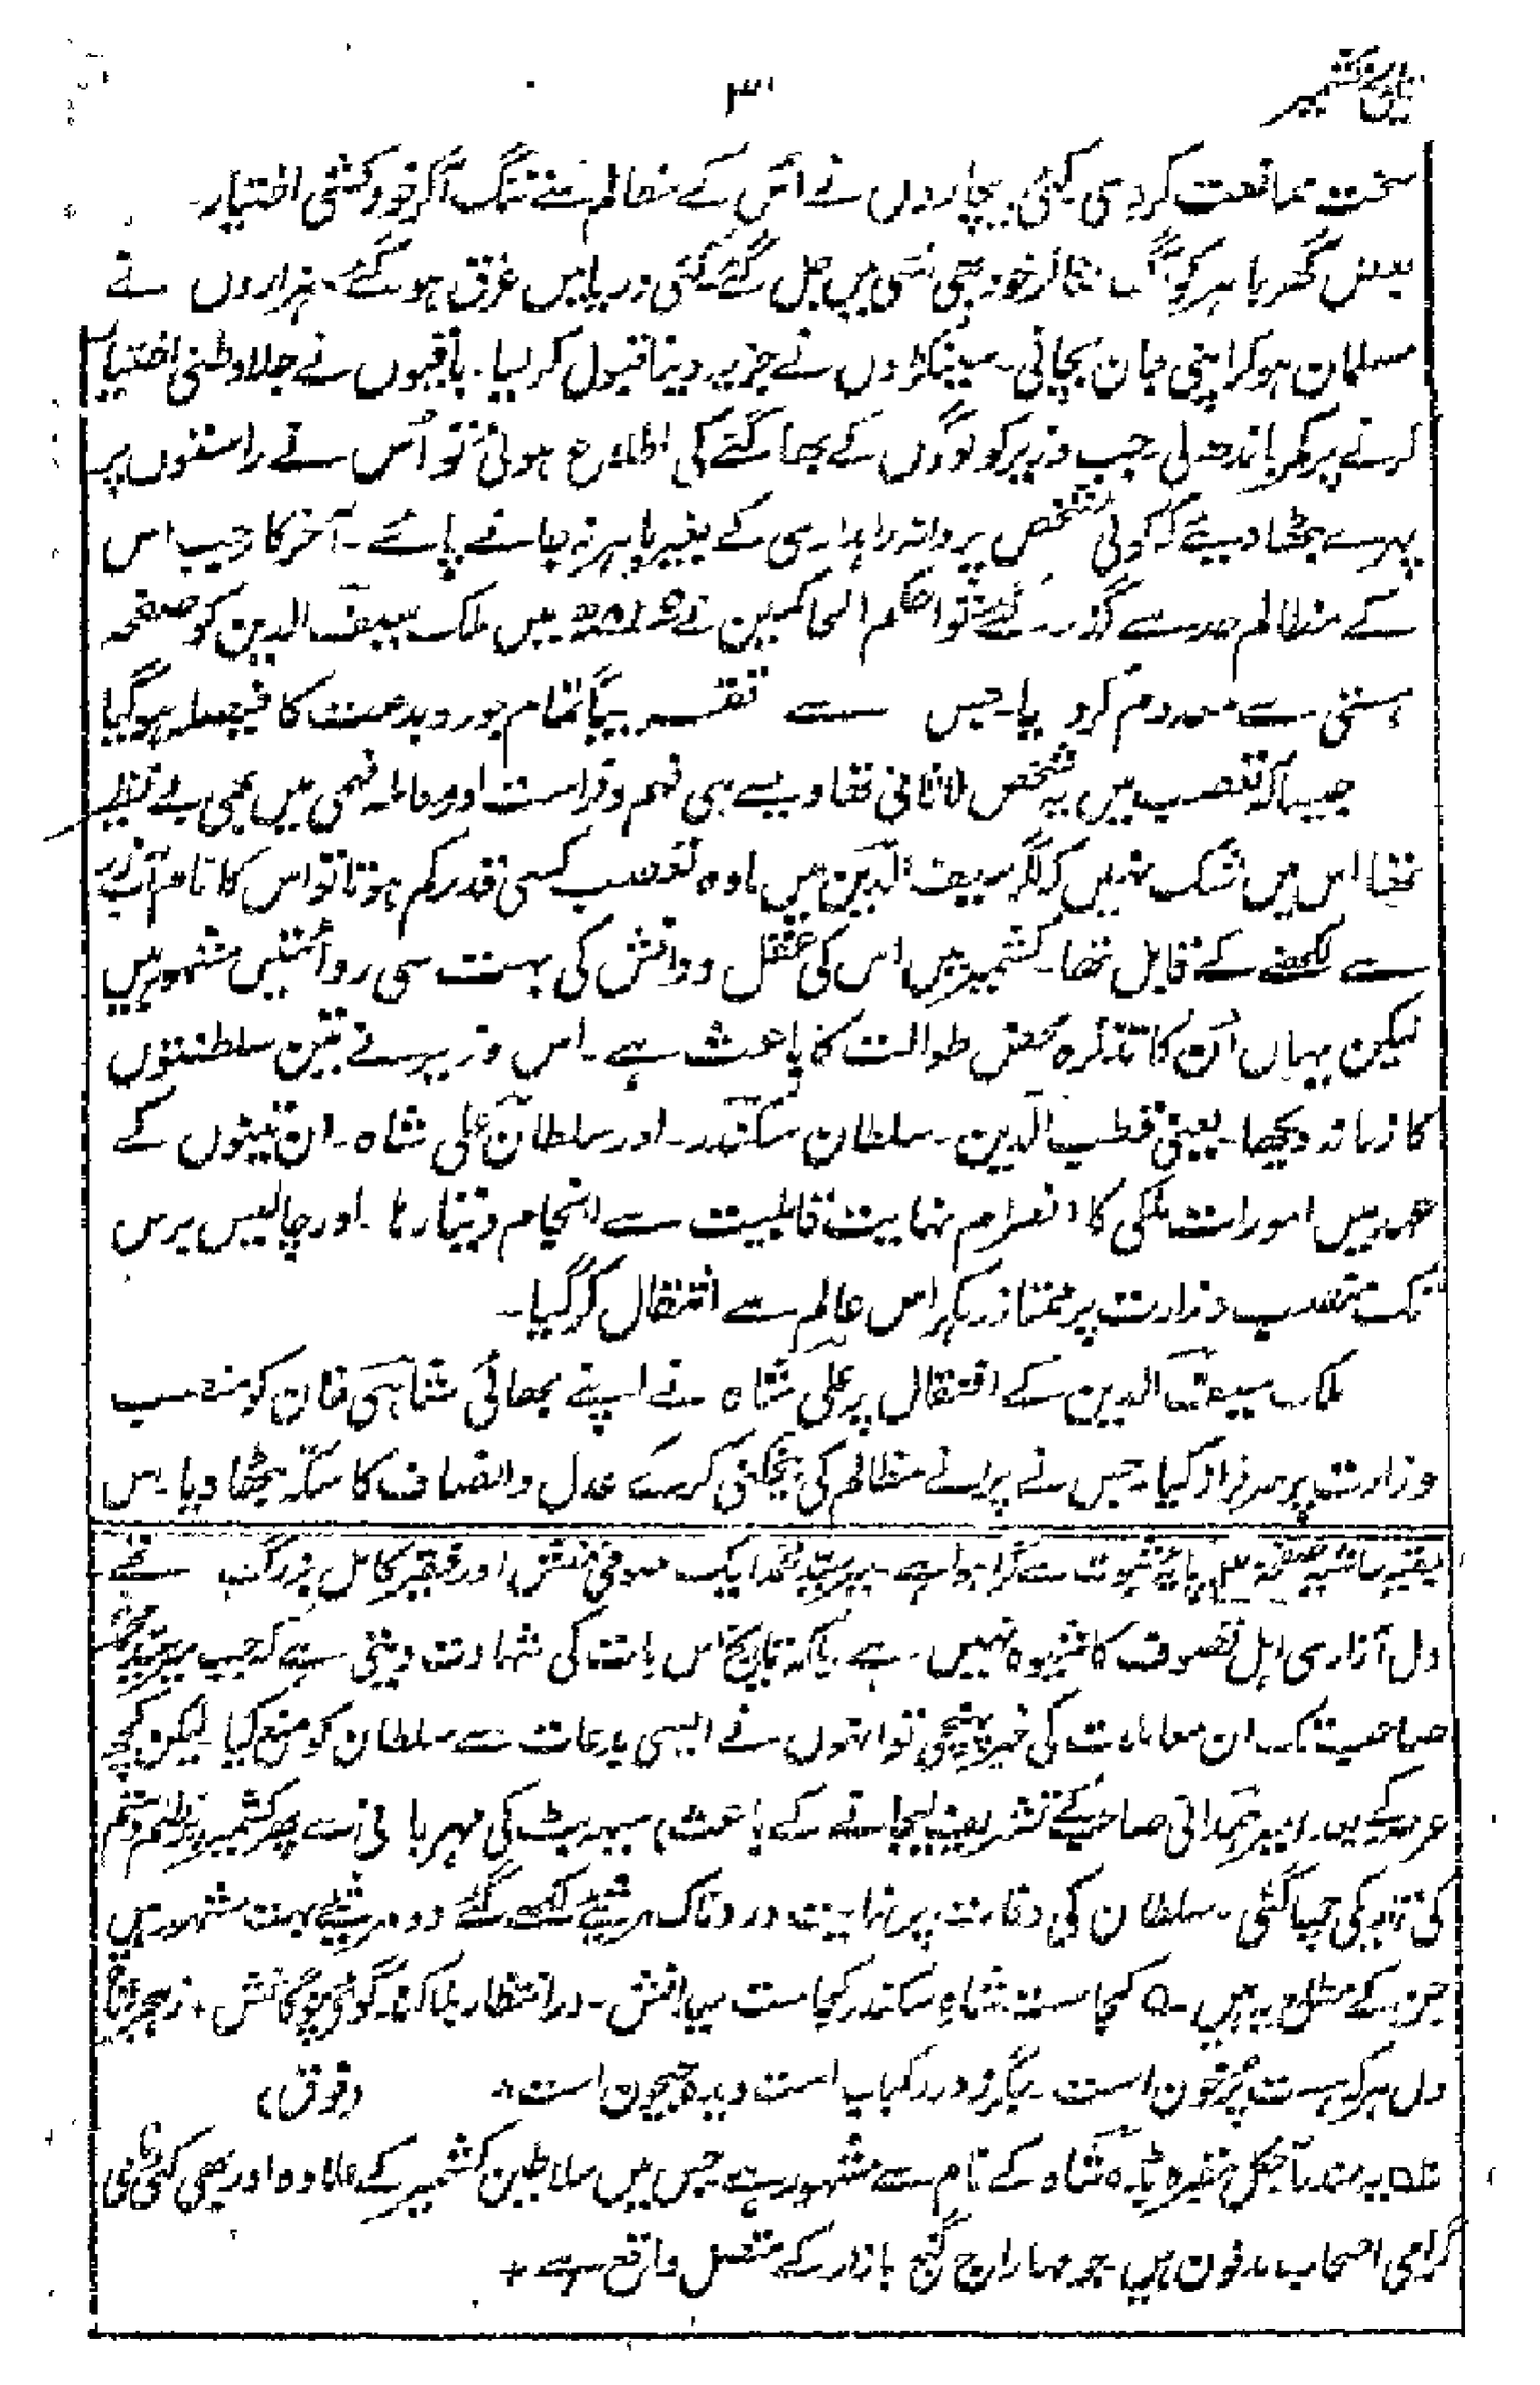 تاریخ کشمیر
۳
سخت ممانعت کردی۔ کئی بیچاروں نے اس کے مظالم سے تنگ آکر خودکشی اختیار۔
بعض گھر بار کو آگ لگا کر خود بھی اسی میں جل گئے۔ کئی دریا میں غرق ہوگئے۔ ہزاروں نے
مسلمان ہوکر اپنی جان بچائی۔ سینکڑوں نے جزیہ دینا قبول کرلیا۔ باقیوں نے جلاوطنی اختیار
کرنے پر کمر باندھ لی۔ جب وزیر کو لوگوں کے بھاگنے کی اطلاع ہوئی تو اُس نے راستوں پر
پہرے بٹھا دیئے کہ کوئی شخص پروانہ راہداری کے بغیر باہر نہ جانے پائے۔ آخرکار جب اس
کے مظالم حد سے گذر گئے تو احکم الحاکمین نے میں ملک سیف الدین کو صفحہ
ہستی سے معدوم کردیا۔ جس سے تقریباً تمام جور و بدعت کا فیصلہ ہوگیا
جیسا کہ تعصب میں یہ شخص لاثانی تھا ویسے ہی فہم و فراست اور معاملہ فہمی میں بھی بے نظیر
تھا اس میں شک نہیں کہ اگر سیف الدین میں مادہ تعصب کسی قدر کم ہوتا تو اس کا نام آب زر
سے لکھنے کے قابل تھا۔ کشمیر میں اس کی عقل و دانش کی بہت سی روائتیں مشہور ہیں
لیکن یہاں اُن کا تذکرہ محض طوالت کا باعث ہے۔ اس وزیر نے تین سلطنتوں
کا زمانہ دیکھا۔ یعنی قطب الدین۔ سلطان سکندر۔ اور سلطان علی شاہ۔ ان تینوں کے
عہد میں امورات ملکی کا انصرام نہایت قابلیت سے انجام دیتا رہا۔ اور چالیس برس
تک منصب وزارت پر ممتاز رہکر اس عالم سے انتقال کرگیا۔
ملک سیف الدین کے انتقال پر علی شاہ نے اپنے بھائی شاہی خان کو منصب
وزارت پر سرفراز کیا۔ جس نے پرانے مظالم کی بیخکنی کرکے عدل و انصاف کا سکّہ بٹھا دیا۔ اس
بقیہ حاشیہ صفحہ پایہ ثبوت سے گرا ہوا ہے۔ میر سید محمد ایک صوفی منش اور فقیر کامل بزرگ تھے
دل آزاری اہل تصوف کا شیوہ نہیں ہے۔ بلکہ تاریخ اس بات کی شہادت دیتی ہے کہ جب میر سید محمد
صاحب تک ان معاملات کی خبر پہنچی تو انہوں نے ایسی بدعات سے سلطان کو منع کیا لیکن کچھ
عرصہ کے بعد امیر ہمدانی صاحب کے تشریف لیجانے کے باعث سیہ بٹ کی مہربانی سے پھر کشمیر پر ظلم و ستم
کی تاریکی چھا گئی۔ سلطان کی وفات پر نہایت دردناک مرثیئے لکھے گئے دو مرثیئے بہت مشہور ہیں
جن کے مطلع یہ ہیں۔ کجاست شاہ سکندر کجاست سپاہش۔ در انتظار
دل ہر کہ ہست پُرخون است۔ جگر ز درد کباب است دیدہ جیحون است۔ (فوق)
یہ آجکل مقبرہ شاہ کے نام سے مشہور ہے جس میں سلاطین کشمیر کے علاوہ اور بھی کئی نامی
گرامی اصحاب مدفون ہیں۔ جو مہاراج گنج بازار کے متصل واقع ہے +